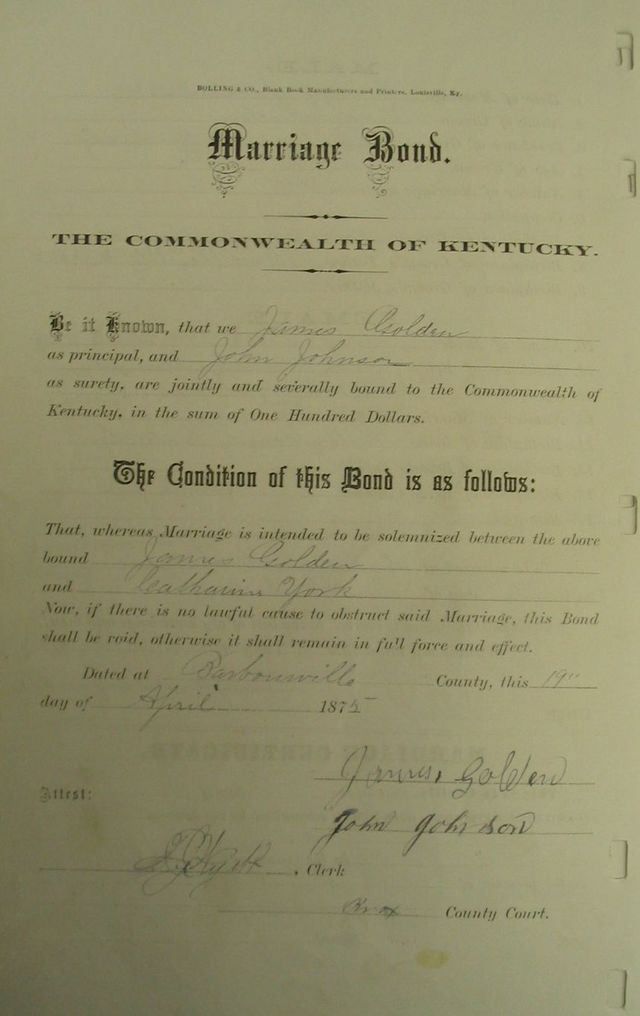 BOLLING & CO., Blank Book Manufacturers and Printers, Louisville, Ky.
Marriage Bond.
THE COMMONWEALTH OF KENTUCKY.
Be it Known, that we James Golden
as principal, and John Johnson
as surety, are jointly and severally bound to the Commonwealth of
Kentucky, in the sum of One Hundred Dollars.
The Condition of this Bond is as follows:
That, whereas Marriage is intended to be solemnized between the above
bound James Golden
and Catharine York
Now, if there is no lawful cause to obstruct said Marriage, this Bond
shall be void, otherwise it shall remain in full force and effect.
Dated at Barbourville County, this 19"
day of April 1875
James Golden
Attest:
John Johnson
, Clerk
Knox County Court.